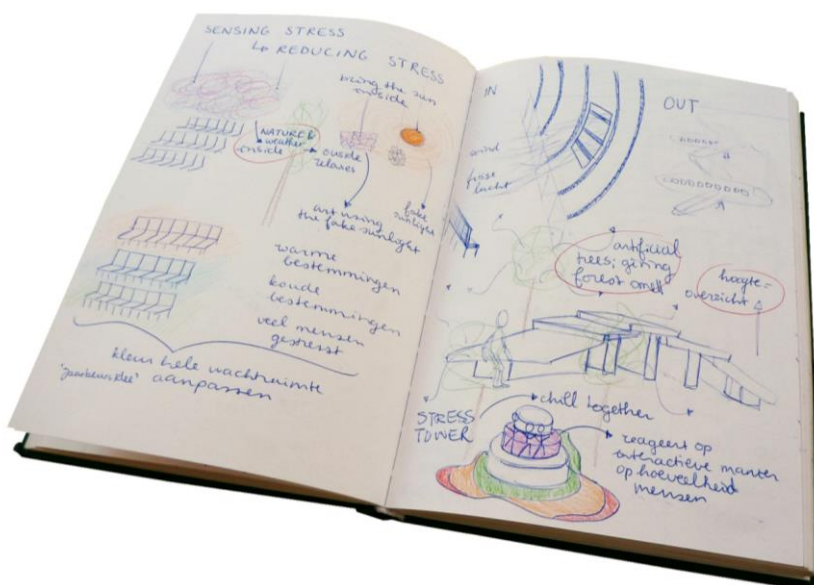 SENSING STRESS
↳ REDUCING STRESS
bring the sun
inside
NATURE &
weather
inside
→ ouside
relaxes
art using
the fake sunlight
fake
sunlight
warme
bestemmingen
koude
bestemmingen
veel mensen
gestresst
kleur hele wachtruimte
aanpassen
IN
OUT
wind
frisse
lucht
artificial
trees; giving
forest smell
hoogte =
overzicht
STRESS
TOWER
chill together
reageert op
interactieve manier
op hoeveelheid
mensen